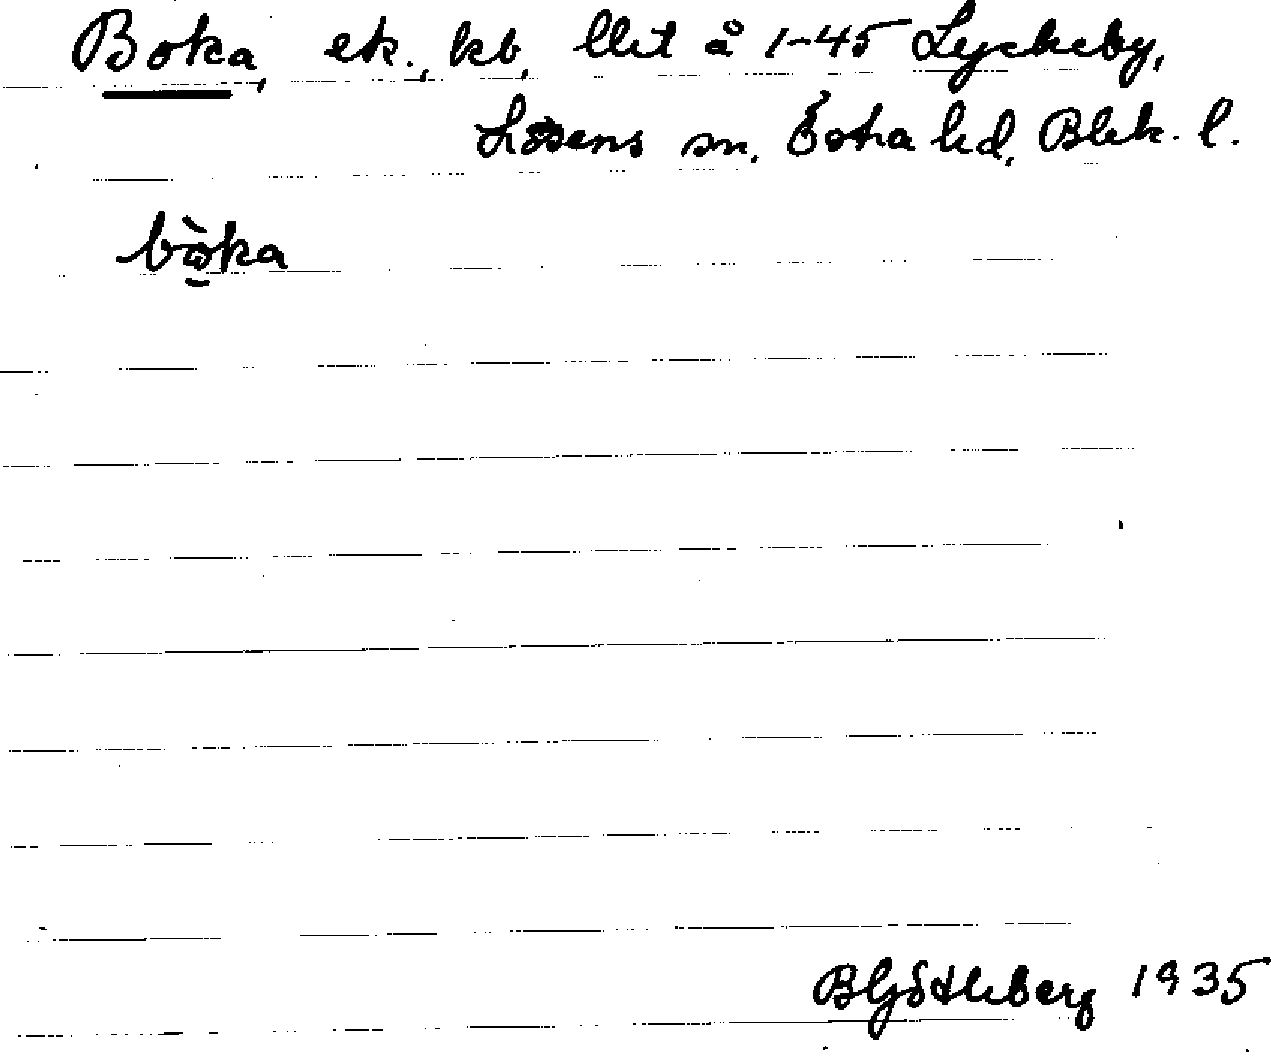 Boka, ek., kb, Utlit å 1-45 Lyckeby,
Lösens sn, Östra hd, Blek. l.
bò̱ka
1935